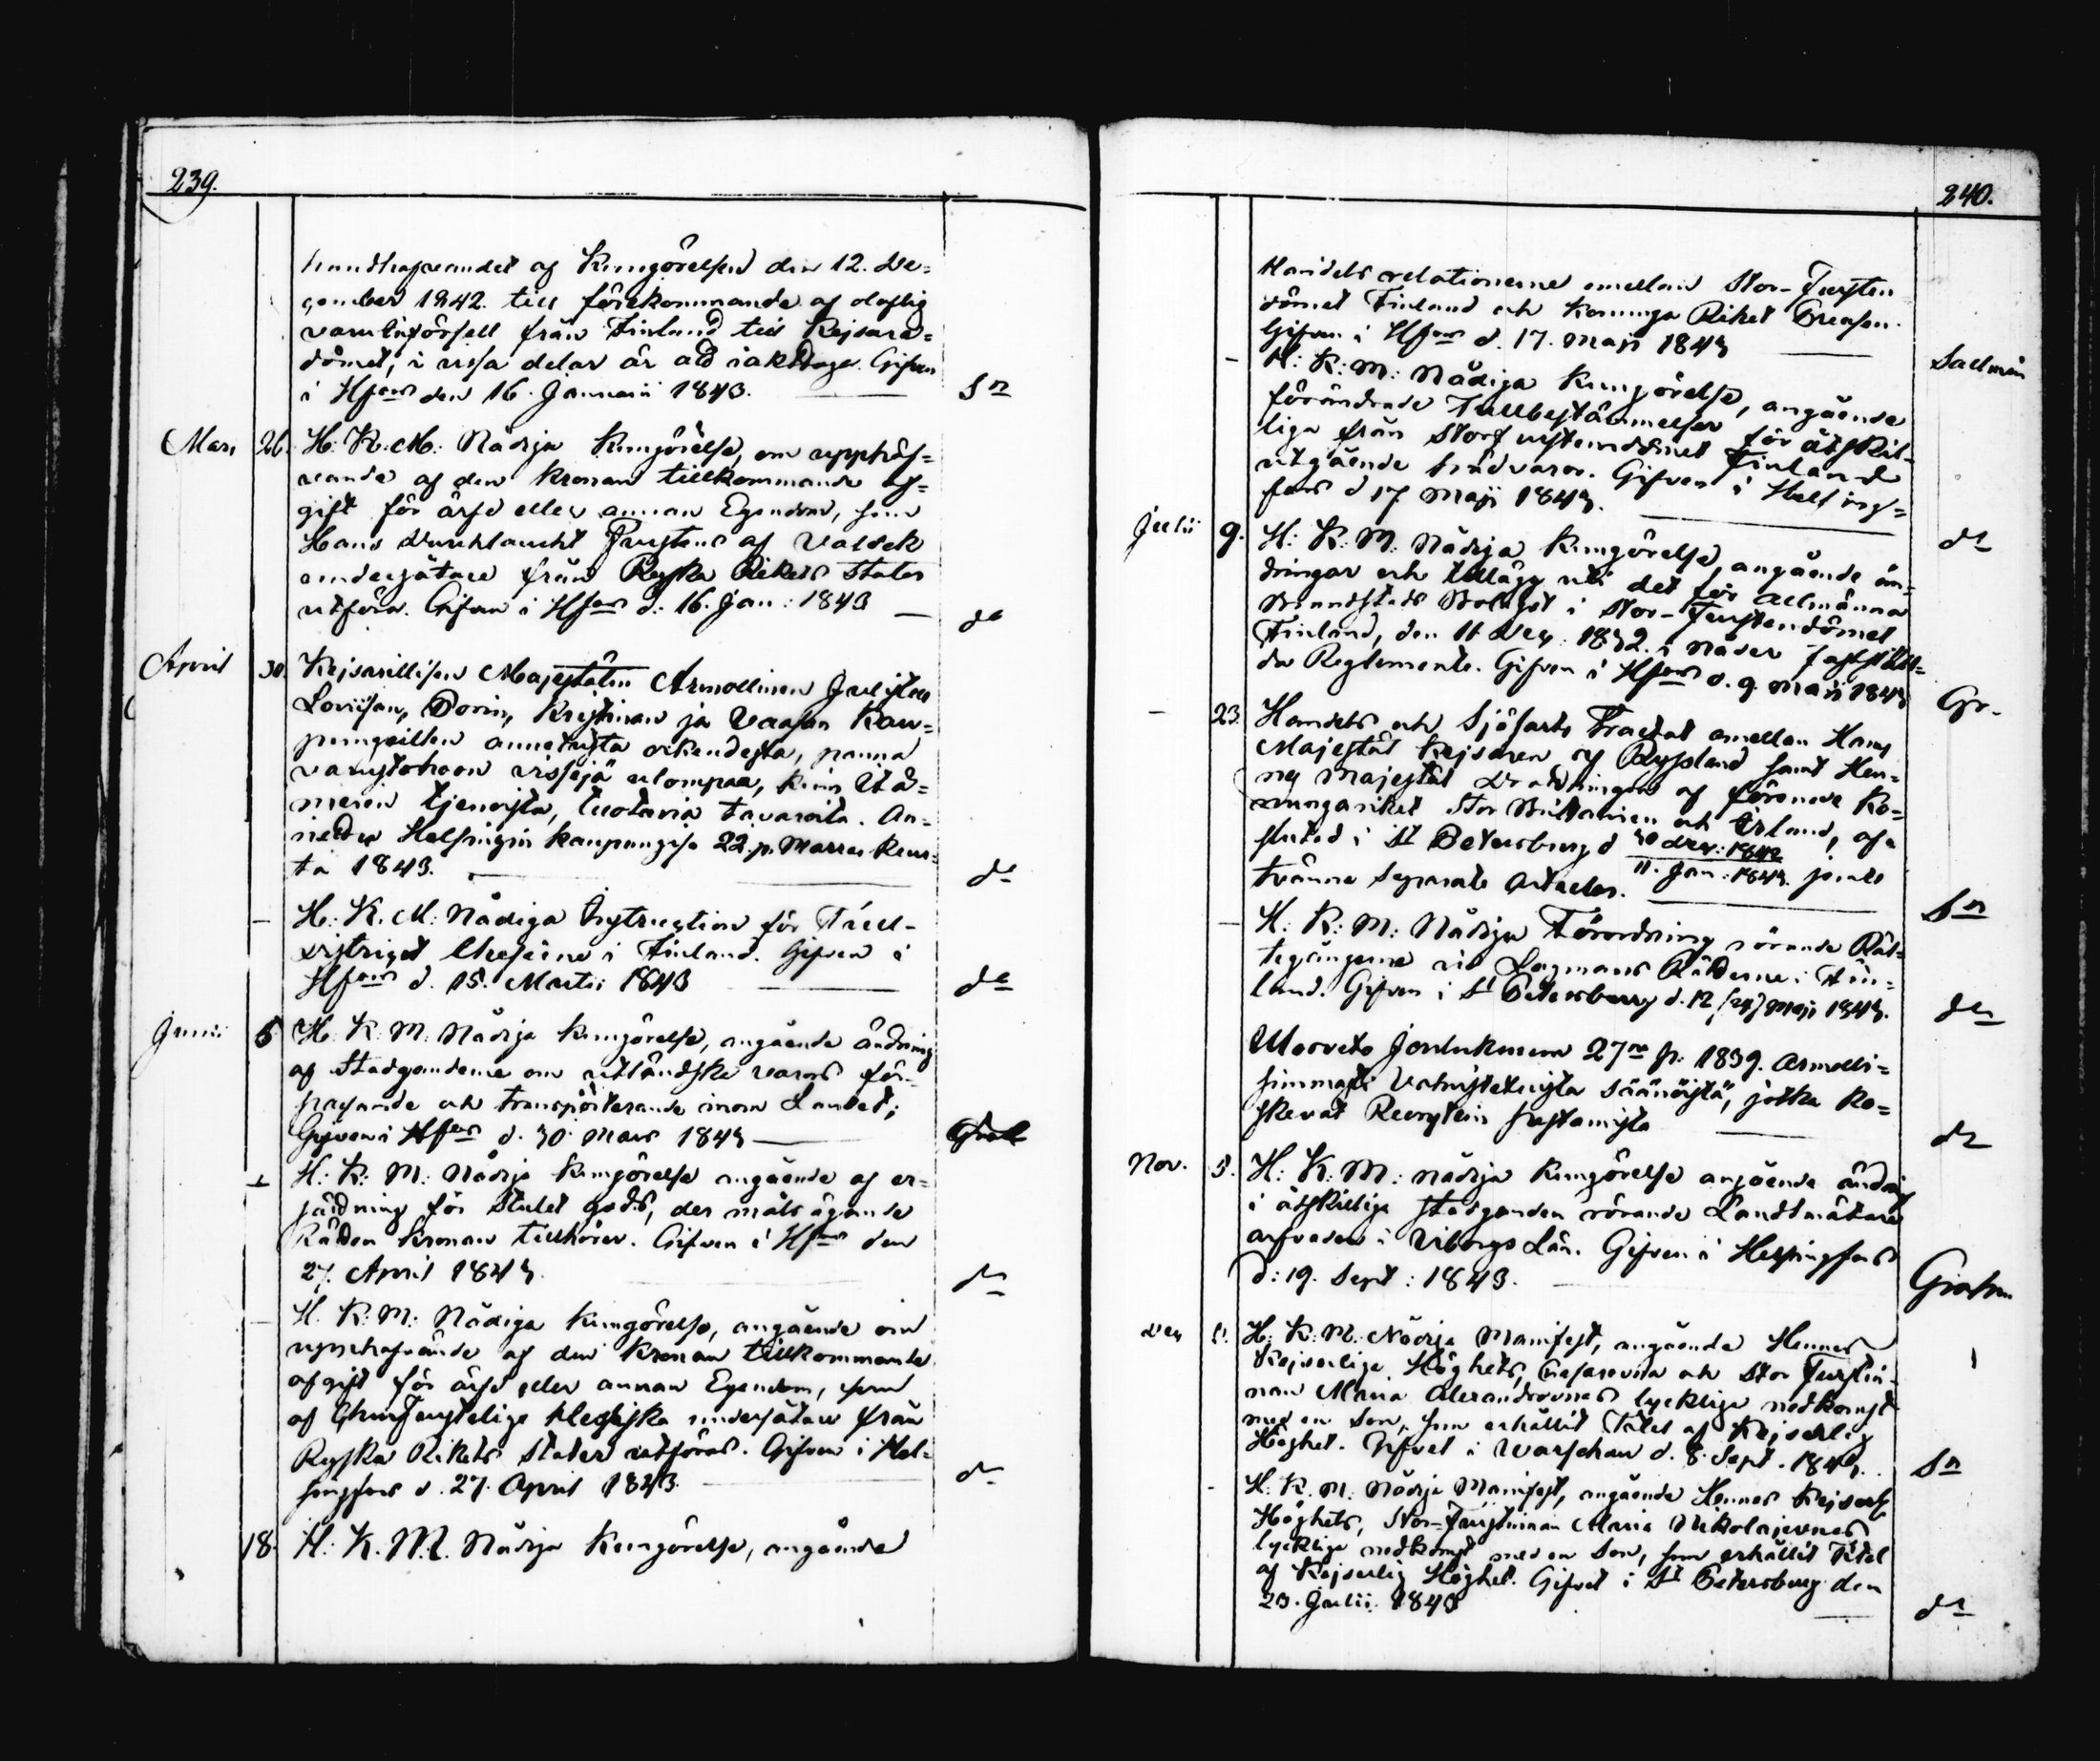 239.
handhafvandet af Kungörelsen den 12. De=
çember 1842. till förekommande af olaglig
varuinförsell från Finland till Kejsare=
dömet, i vissa delar är att iakttaga. Gifven
i Hfors den 16. Januarii 1843. Sn
Mars 26. H. K. M: Nådiga Kungörelse, om upphäf=
vande af den Kronan tillkommande af=
gift för ärfd eller annan Egendom, som
Hans Durchlaucht Furstens af Valdek
undersåtare från Ryska Rikets Stater
utföra. Gifven i Hfors d: 16. Jan: 1843 do
April 30. Kejsarillisen Majestätin Armollinen Julistus
Lovisan, Porin, Kristinan ja Vaasan Kau=
pungeillen annetusta oikeudesta, panna
varustohoon vissejä ulompaa, kuin Itä=
meren tjenoista, tuotavia tavaroita. An=
nettu Helsingin kaupungisa 22. p. Marras Kuu=
ta 1843. do
— H: K. M: Nådiga Instruction för Tull-
distriget Uleseine i Finland. Gifven i
Hfors d. 15. Martii 1843 do
Junii 5 H. K. M. Nådiga Kungörelse, angående ändring
af Stadgandena om utländska varors för-
passande och transporterande inom Landet;
Gifven i Hfors d. 30. Mars 1843
— H: K: M: Nådiga Kungörelse angående af er=
sättning för Stulet gods, der måls ägande
Rätten Kronan tillhörer. Gifven i Hfors den
27. April 1843. do
— H. K: M: Nådiga Kungörelse, angående om
upphäfvande af den Kronan tillkommande
afgift för ärfd eller annan Egendom, som
af Churfurstelige Hessiska undersåtare från
Ryska Rikets Stater utföras. Gifven i Hel=
singfors d. 27. April 1843. do
18. H: K. M. Nådiga Kungörelse, angående
240.
Handels relationerne emellan Stor-Fursten
dömet Finland och Konunga Riket Preussen.
Gifven i Hfors d. 17. Maji 1843 Sallmén
— H: K: M: Nådiga Kungörelse, angående
förändrade Tullbestämmelser för åtskil-
liga från Storfurstendömet Finland
utgående trädvaror. Gifven i Helsing=
fors d 17 Maji 1843. do
Julii 9. H: K: M: Nådiga Kungörelse, angående än=
dringar och tillägg uti det för Allmänna
Brandstods Bolaget i Stor-Furstendömet
Finland, den 11 Dec. 1832. i Nåder faststäl=
da Reglemente. Gifven i Hfors d. 9. Maji 1843 Gr.
— 23. Handels och Sjöfarts Tractat emellan Hans
Majestät Kejsaren af Ryssland samt Hen=
nes Majestät Drottningen af förenade Ko=
nungariket Stor Brittanien och Irland, af=
slutad i St Petersburg d 30 Dec: 1842
11. Jan: 1843. jemte
tvänne Separate Articlar. Sn
— H: K: M: Nådiga Förordning rörande Rät=
tegångarne vid Lagmans Rätterne i Fin=
land. Gifven i St Petersburg d. 12 (24) Maji 1843. do
Ulosveto Joulukuun 27na p: 1839. Armolli=
simmasti Vahvistetuista Säänöistä, jotka Ko=
skevat Revystein sustamista do
Nov. 5. H: K: M: Nådiga Kungörelse angående ändring
i åtskillige stadganden rörande Landtmätare
arfvoden i Viborgs Län. Gifven i Helsingfors
d: 19. Sept: 1843. Grahn
Dec H: K: M: Nådiga Manifest, angående Hennes
Kejserliga Höghets, Cesarevna och Stor Furstin-
nan Maria Alexandrovnas lyckliga nedkomst
med en Son, som erhållit Titel af Kejserlig
Höghet. Gifvet i Warschau d. 8. Sept. 1843. Sn
- H. K. M. Nådiga Manifest, angående Hennes Kejserl.
Höghets, Stor-Furstinnan Maria Nikolajevnas
lyckliga nedkomst med en Son, som erhållit Titel
af Kejserlig Höghet. Gifvet i St Petersburg den
23. Julii 1843 do